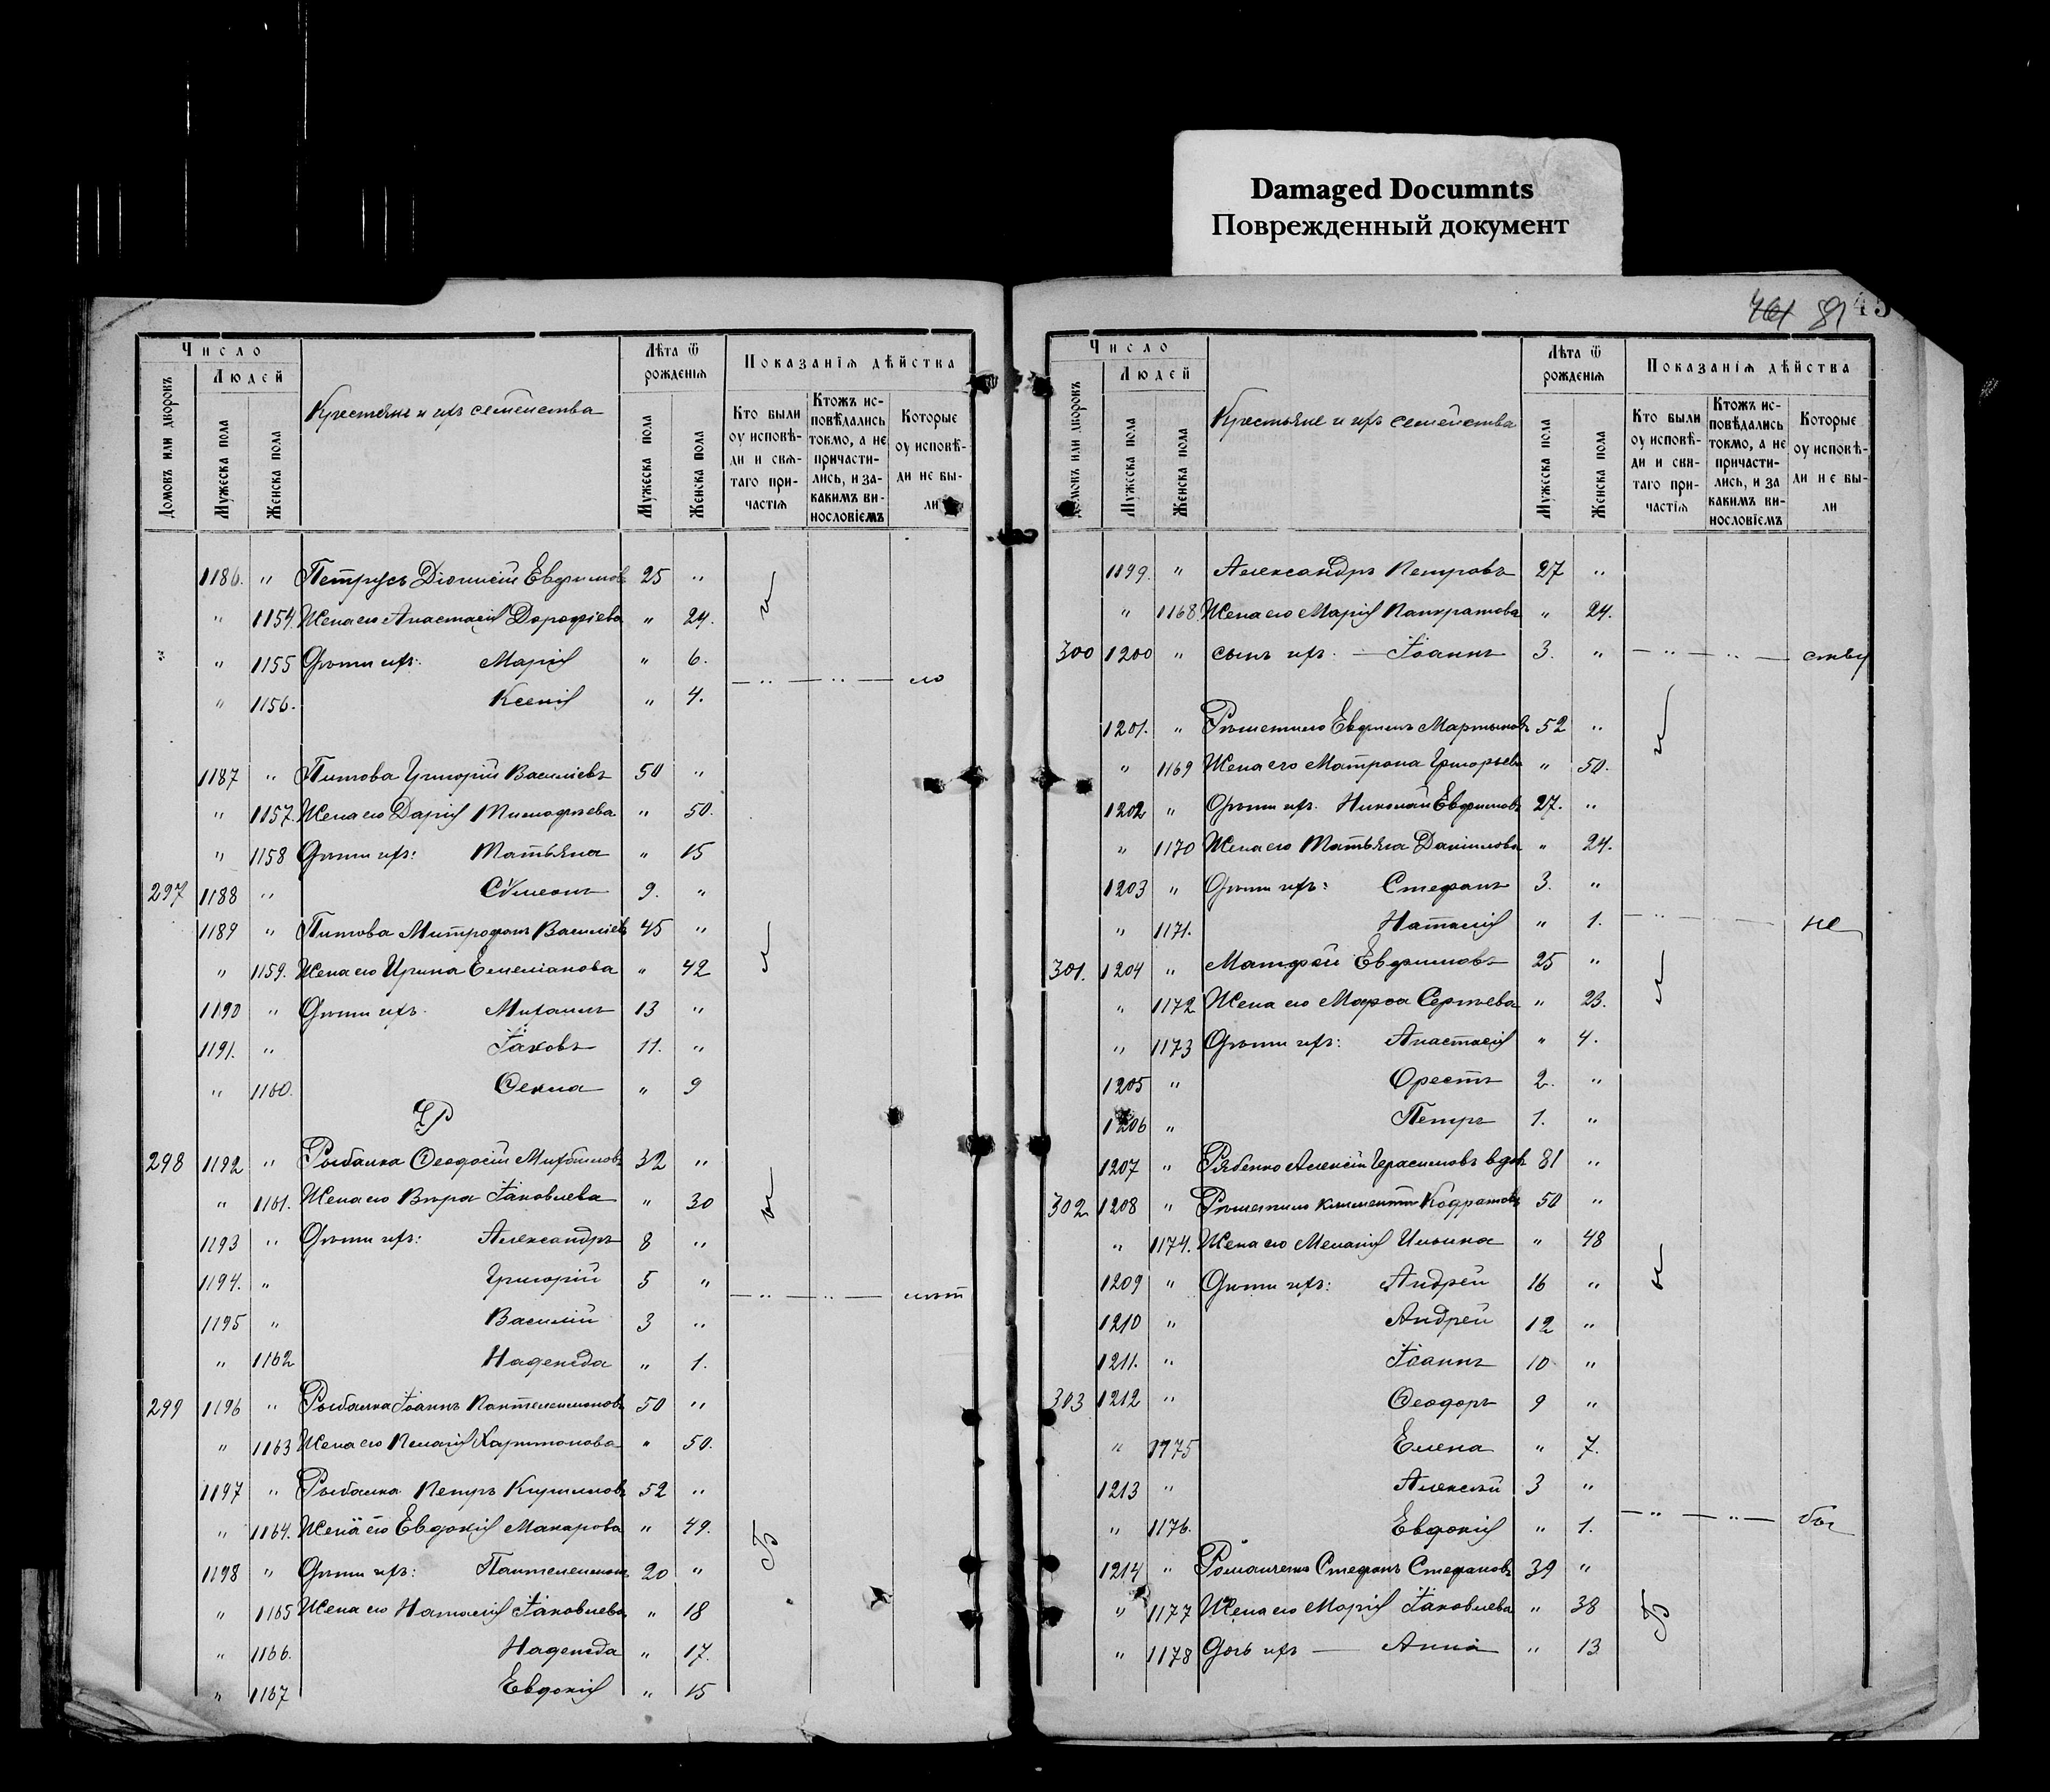 Damaged Documnts
Поврежденный документ
81 45
Число
Людей
Домовъ или дворовъ
Мужеска пола
Женска пола
Крестьяне и ихъ семейства
Лѣта ѿ рожденія
Мужеска пола
Женска пола
Показанія дѣйства
Кто были оу исповѣ-
ди и свѧ-
таго при-
частія
Ктожъ ис-
повѣдались
токмо, а не
причасти-
лись, и за-
какимъ ви-
нословіемъ
Которые
оу исповѣ-
ди не бы-
ли
1186. " Петрусь Діонисій Евфимовъ 25 "
" 1154. Жена его Анастасія Дорофіева " 24.
" 1155 Дѣти ихъ: Марія " 6.
" 1156. Ксенія " 4.
1187 " Питова Григорій Василіевъ 50 "
" 1157. Жена его Дарія Тимофѣева " 50.
" 1158 Дѣти ихъ: Татьяна " 15
297 1188 " Сѵмеонъ 9. "
1189 " Питова Митрофанъ Василіевъ 45 "
" 1159. Жена его Ирина Емеліанова " 42
1190 " Дѣти ихъ. Михаилъ 13 "
1191. " Іаковъ 11. "
" 1160. Ѳекла " 9
Р
298 1192 " Рыбалка Ѳеодосій Михайловъ 32 "
" 1161. Жена его Вѣра Іаковлева " 30
1193 " Дѣти ихъ: Александръ 8 "
1194. " Григорій 5 "
1195 " Василій 3 "
" 1162 Надежда " 1.
299 1196 " Рыбалка Іоаннъ Пантелеимоновъ 50 "
" 1163 Жена его Пелагія Харитонова " 50.
1197 " Рыбалка Петръ Кирилловъ 52 "
" 1164. Жена его Евдокія Макарова " 49.
1198 " Дѣти ихъ: Пантелеимонъ 20 "
" 1165 Жена его Наталія Іаковлева " 18
" 1166. Надежда " 17.
" 1167 Евдокія " 15
Число
Людей
Домовъ или дворовъ
Мужеска пола
Женска пола
Крестьяне и ихъ семейства
Лѣта ѿ рожденія
Мужеска пола
Женска пола
Показанія дѣйства
Кто были
оу исповѣ-
ди и свѧ-
таго при-
частія
Ктожъ ис-
повѣдались
токмо, а не
причасти-
лись, и за
какимъ ви-
нословіемъ
Которые
оу исповѣ-
ди не бы-
ли
1199. " Александръ Петровъ 27 "
" 1168 Жена его Марія Панкратова " 24.
300 1200 " сынъ ихъ. — Іоаннъ 3. "
1201. " Рѣшетило Евфимъ Мартыновъ 52 "
" 1169 Жена его Матрона Григорьева " 50.
1202 " Дѣти ихъ. Николай Евфимовъ 27. "
" 1170 Жена его Татьяна Даніилова " 24.
1203 " Дѣти ихъ: Стефанъ 3. "
" 1171. Наталія " 1. не
301. 1204 " Матфей Евфимовъ 25 "
" 1172 Жена его Марѳа Сергѣева " 23.
" 1173 Дѣти ихъ: Анастасія " 4.
1205 " Орестъ 2. "
1206 " Петръ 1. "
1207 " Рябенко Алексій Герасимовъ вдов 81 "
302 1208 " Рѣшетило Климентъ Кодратовъ 50 "
" 1174. Жена его Меланія Ильина " 48
1209 " Дѣти ихъ: Андрей 16 "
1210 " Андрей 12 "
1211. " Іоаннъ 10 "
303 1212 " Ѳеодоръ 9 "
" 1175 Елена " 7.
1213 " Алексѣй 3 "
" 1176. Евдокія " 1.
1214 " Романченко Стефанъ Стефановъ 39 "
" 1177 Жена его Марія Іаковлева " 38
" 1178 Дочь ихъ — Анна " 13